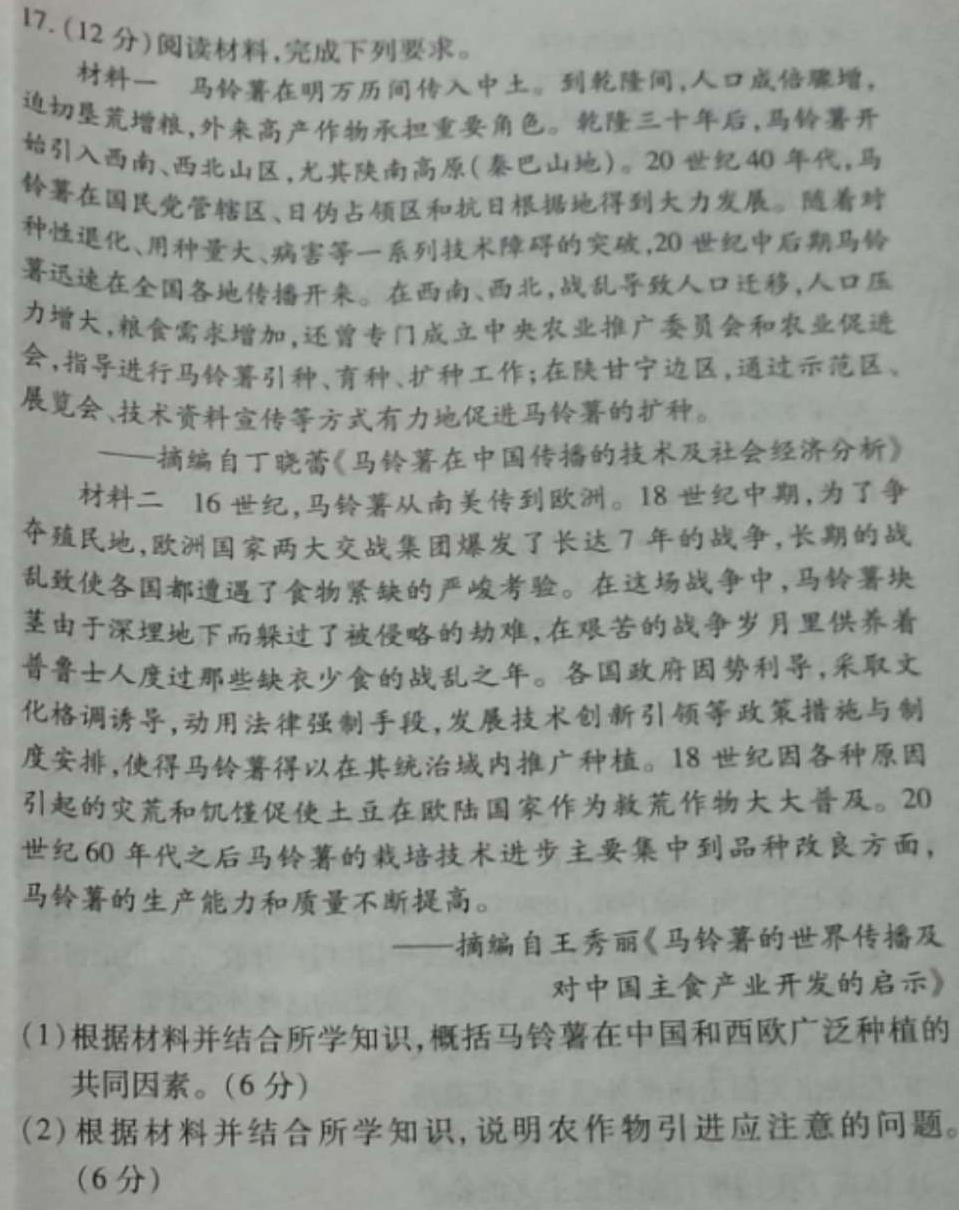 17. (12 分)阅读材料,完成下列要求。
材料一 马铃薯在明万历间传入中土。到乾隆间,人口成倍骤增,
迫切垦荒增粮,外来高产作物承担重要角色。乾隆三十年后,马铃薯开
始引入西南、西北山区,尤其陕南高原(秦巴山地)。20 世纪 40 年代,马
铃薯在国民党管辖区、日伪占领区和抗日根据地得到大力发展。随着对
种性退化、用种量大、病害等一系列技术障碍的突破,20 世纪中后期马铃
薯迅速在全国各地传播开来。在西南、西北,战乱导致人口迁移,人口压
力增大,粮食需求增加,还曾专门成立中央农业推广委员会和农业促进
会,指导进行马铃薯引种、育种、扩种工作;在陕甘宁边区,通过示范区、
展览会、技术资料宣传等方式有力地促进马铃薯的扩种。
——摘编自丁晓蕾《马铃薯在中国传播的技术及社会经济分析》
材料二 16 世纪,马铃薯从南美传到欧洲。18 世纪中期,为了争
夺殖民地,欧洲国家两大交战集团爆发了长达 7 年的战争,长期的战
乱致使各国都遭遇了食物紧缺的严峻考验。在这场战争中,马铃薯块
茎由于深埋地下而躲过了被侵略的劫难,在艰苦的战争岁月里供养着
普鲁士人度过那些缺衣少食的战乱之年。各国政府因势利导,采取文
化格调诱导,动用法律强制手段,发展技术创新引领等政策措施与制
度安排,使得马铃薯得以在其统治域内推广种植。18 世纪因各种原因
引起的灾荒和饥馑促使土豆在欧陆国家作为救荒作物大大普及。20
世纪 60 年代之后马铃薯的栽培技术进步主要集中到品种改良方面,
马铃薯的生产能力和质量不断提高。
——摘编自王秀丽《马铃薯的世界传播及
对中国主食产业开发的启示》
(1)根据材料并结合所学知识,概括马铃薯在中国和西欧广泛种植的
共同因素。(6 分)
(2)根据材料并结合所学知识,说明农作物引进应注意的问题。
(6 分)